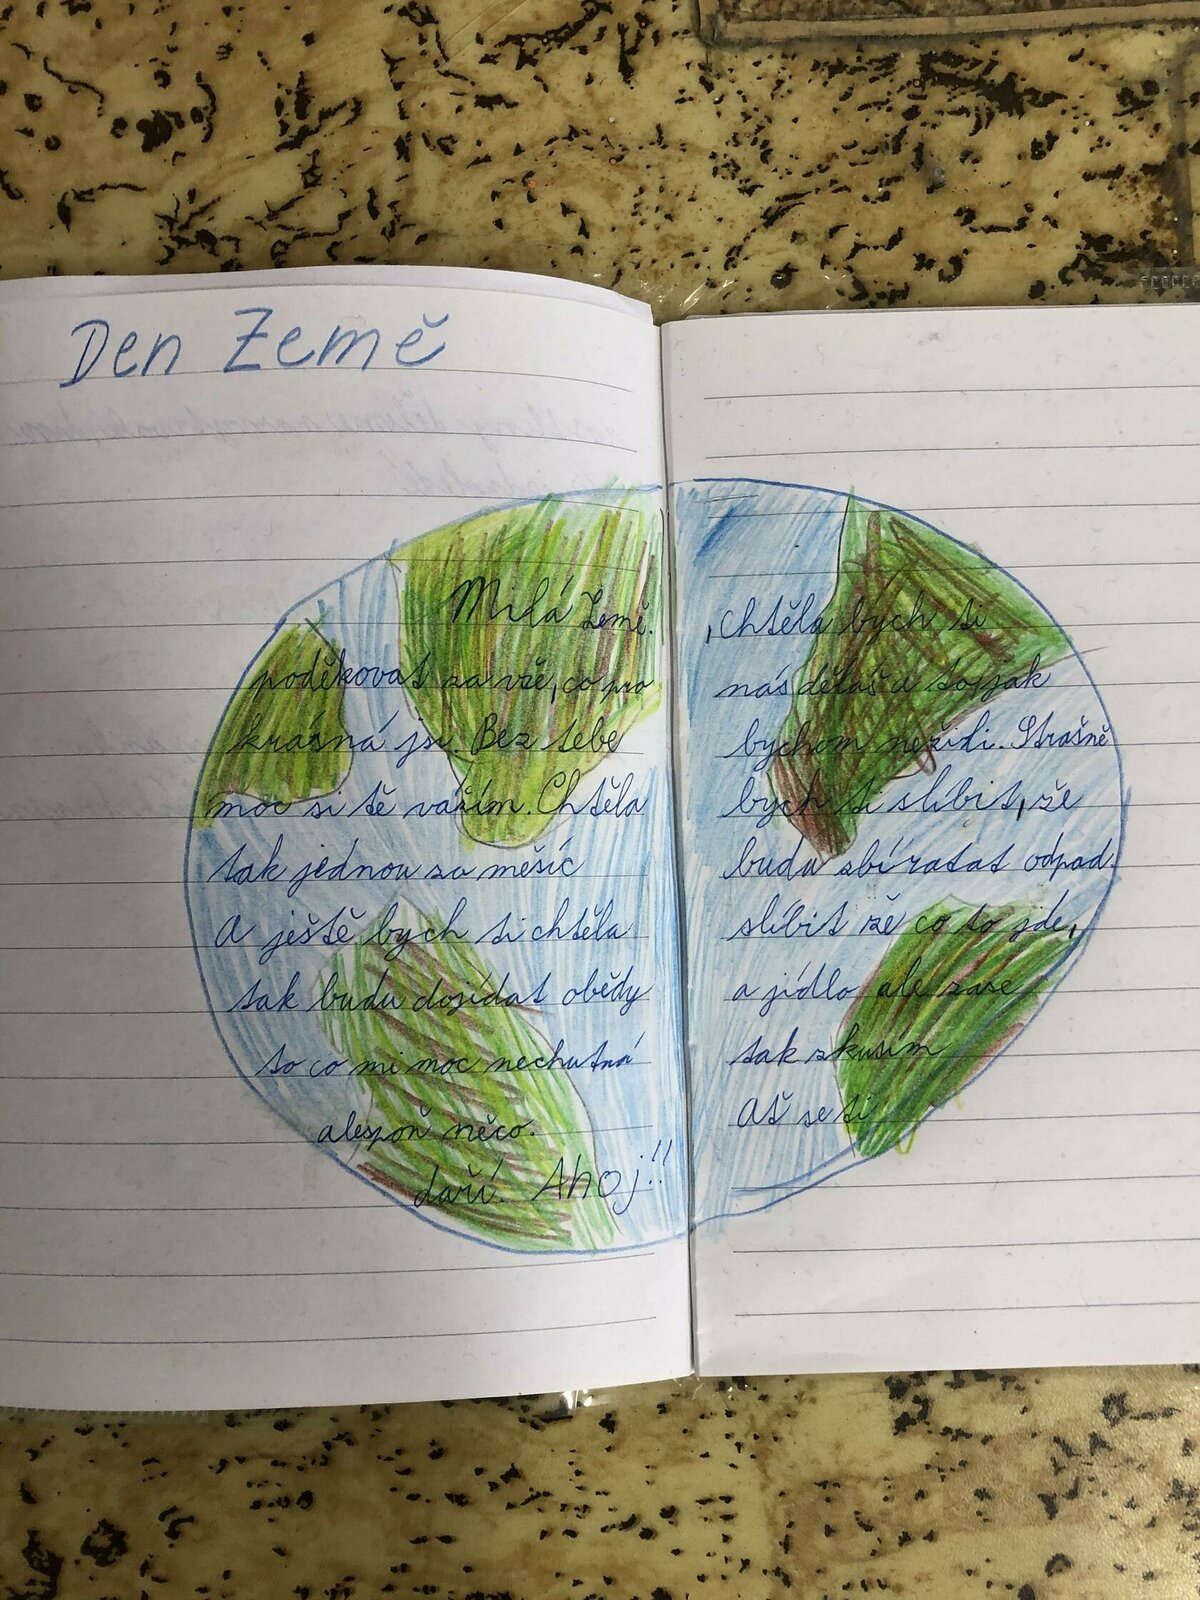 Den Země
Milá Země. , chtěla bych ti
poděkovat za vše, co pro nás děláš a to jak
krásná jsi. Bez tebe bychom nežidi. Strašně
moc si tě vážím. Chtěla bych ti slíbit, že
tak jednou za měšíc budu sbíratat odpad.
A ještě bych ti chtěla slíbit že co to jde,
tak budu dojídat obědy a jídlo ale zase
to co mi moc nechutná tak zkusim
alespoň něco. Ať se ti
daří. Ahoj!!